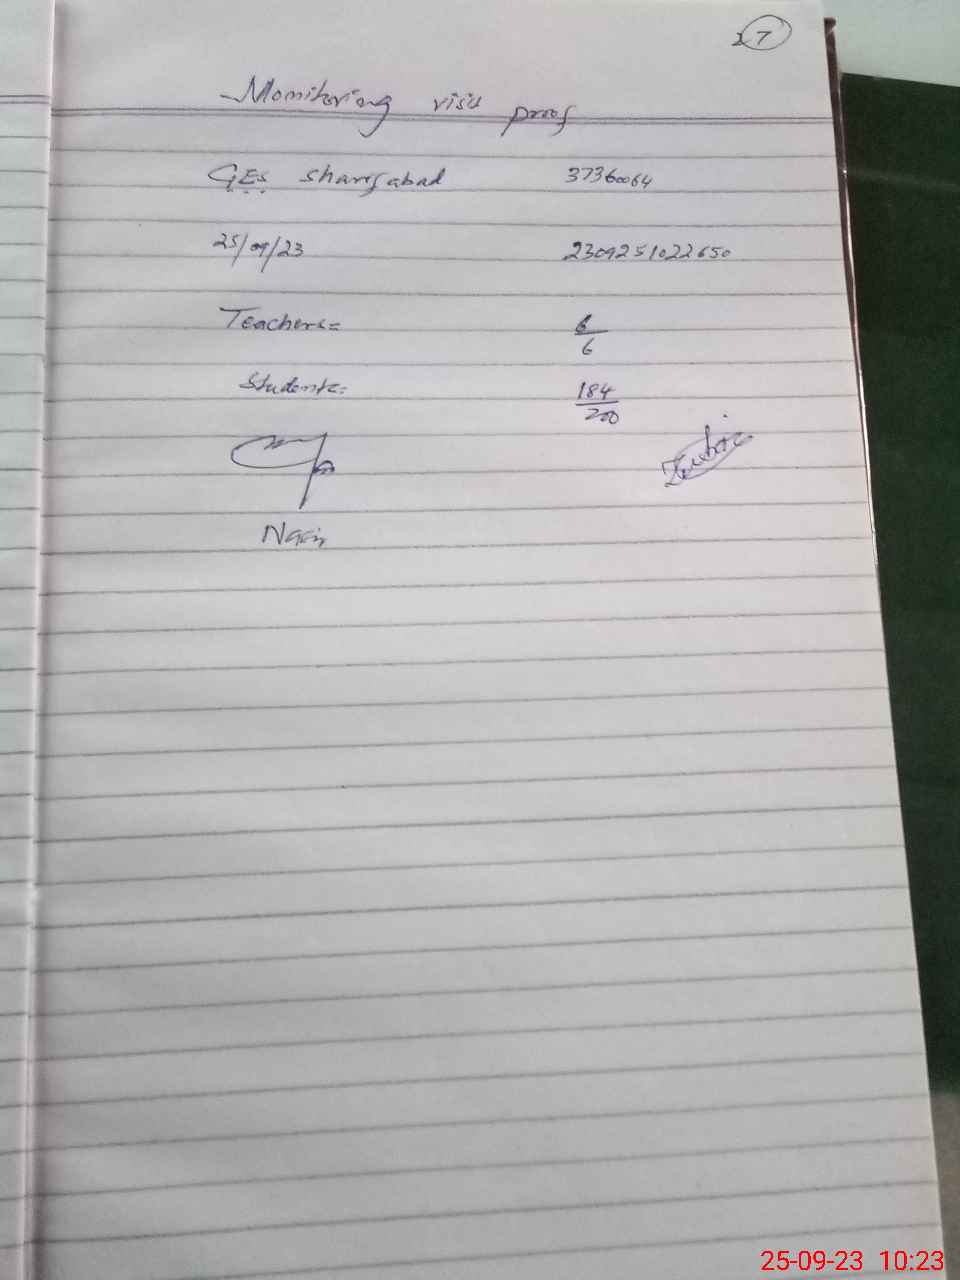 27
Monitoring visit proof
GES sharifabad 37360064
25/09/23 2309251022650
Teachers= 6/6
Students= 184/200
25-09-23 10:23